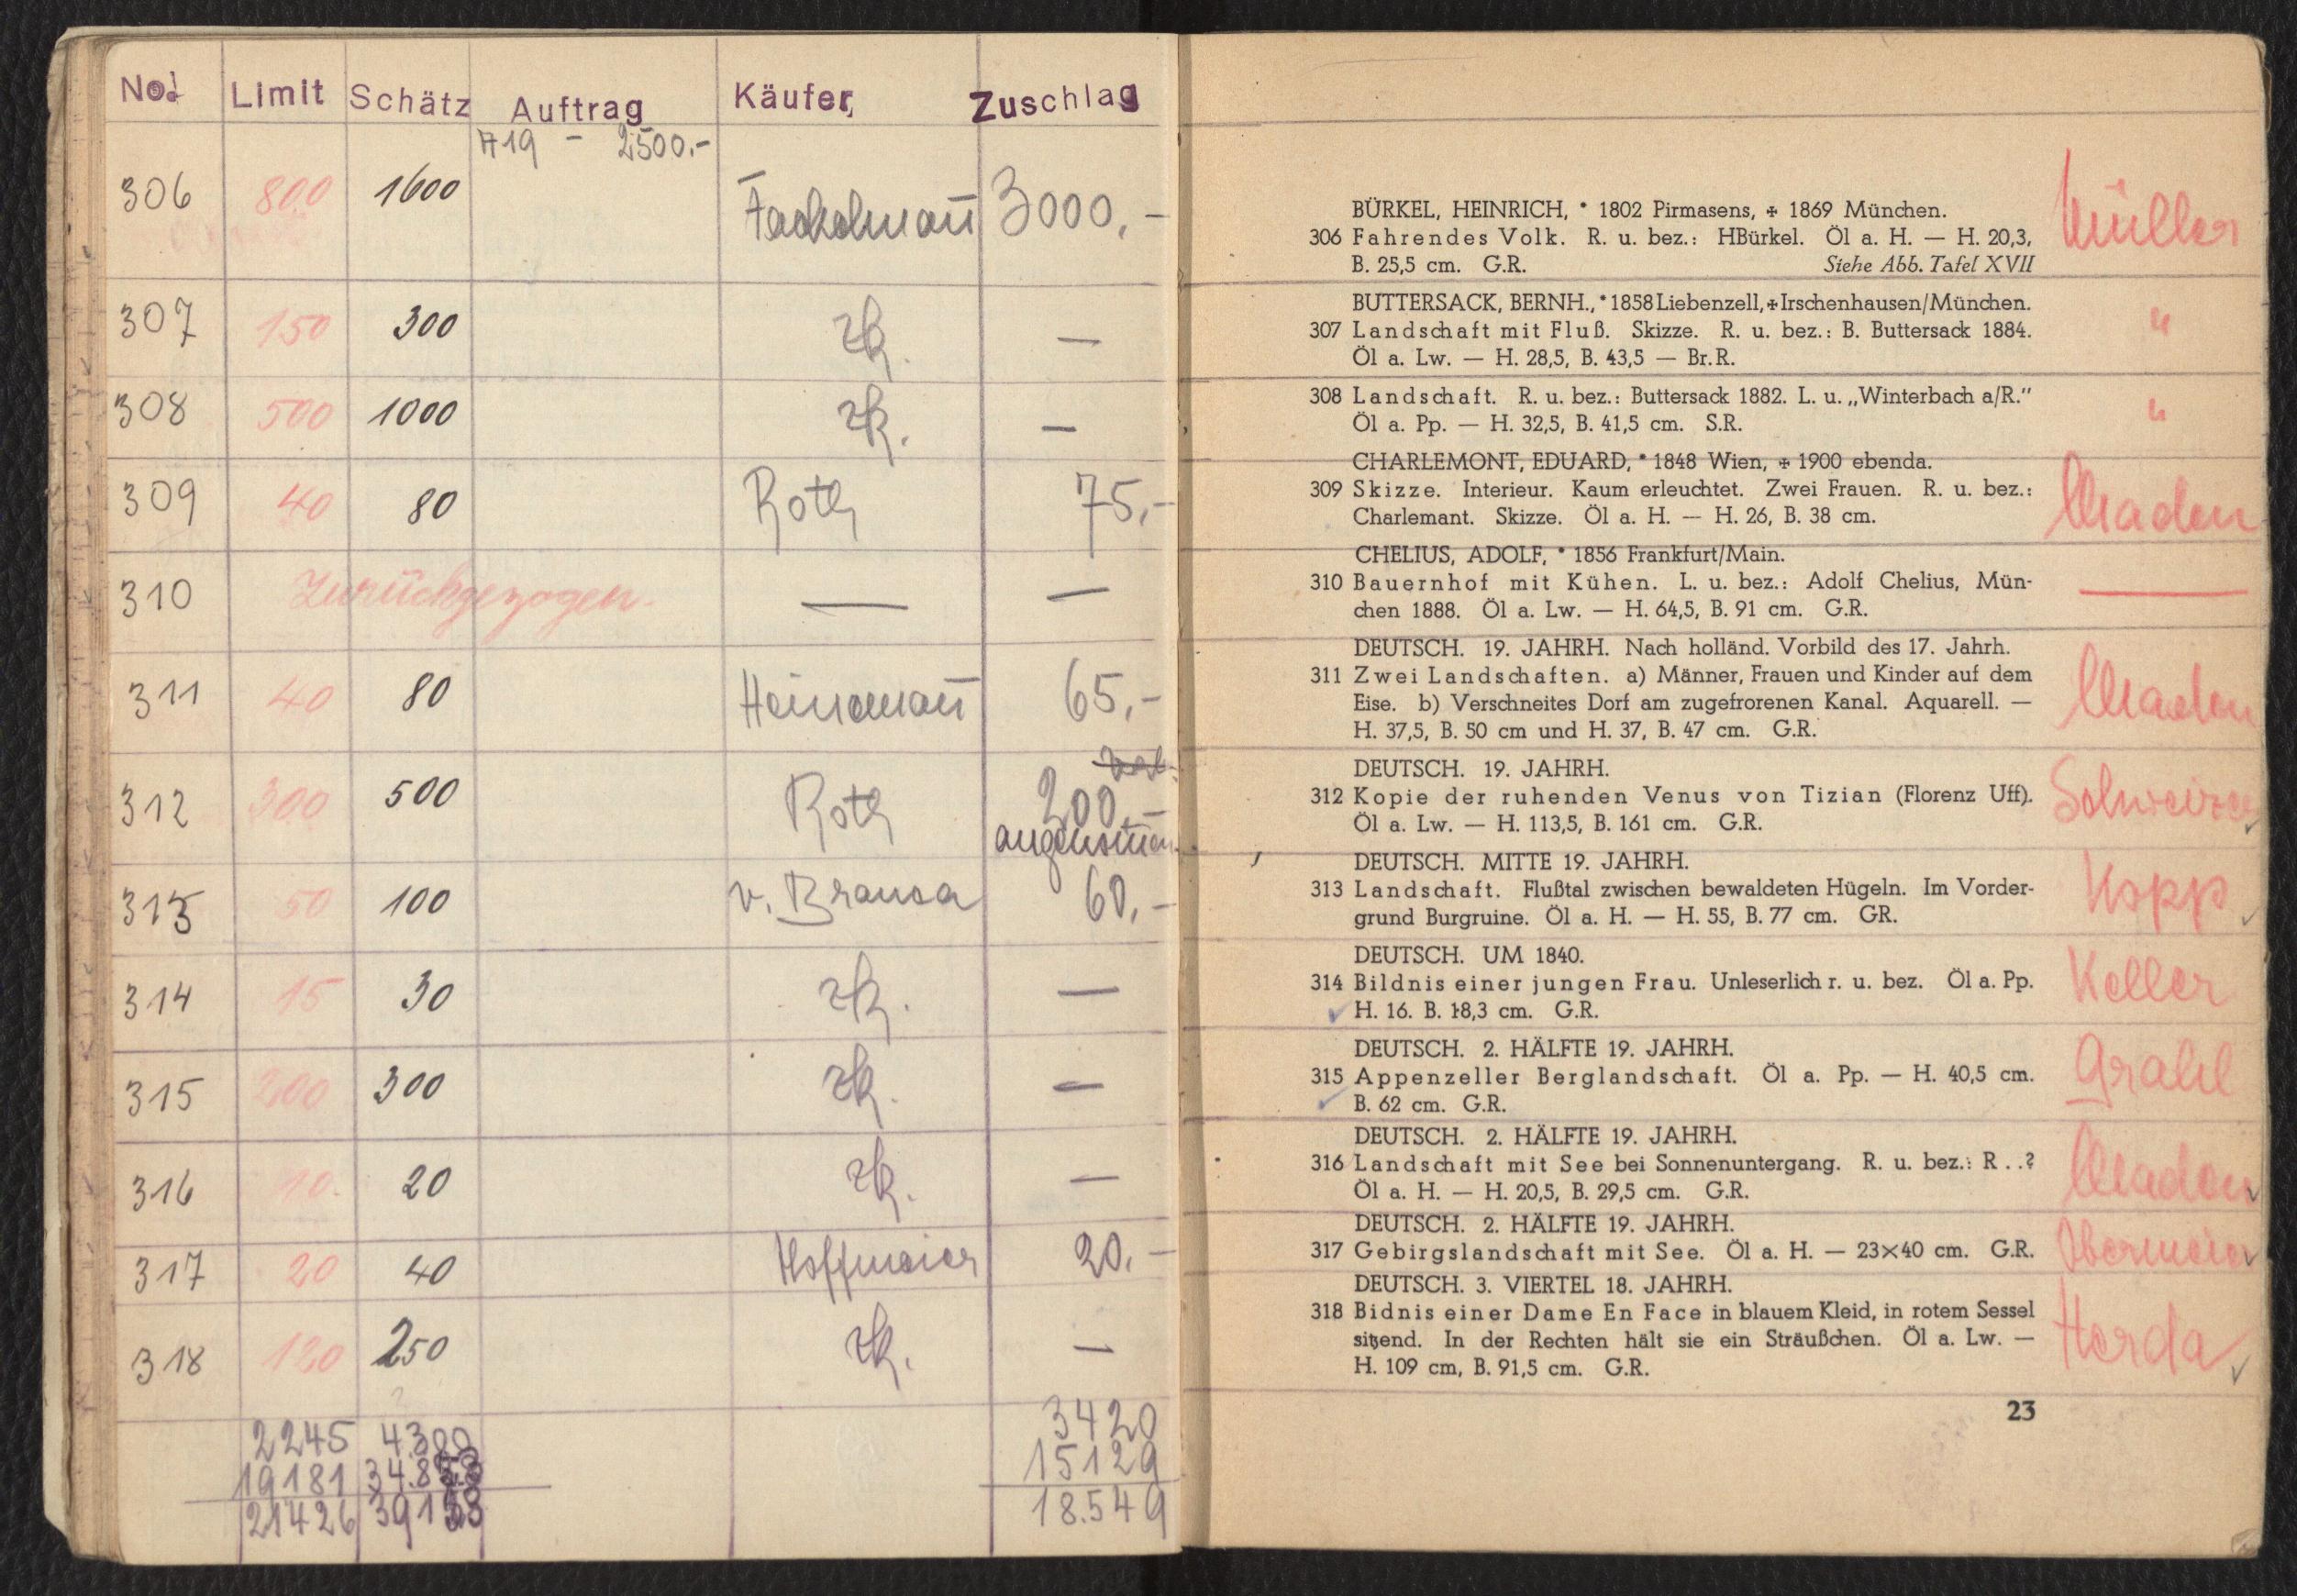 No. Limit Schätz Auftrag Käufer, Zuschlag
A19 - 2500.-
306 800 1600 Fackelmañ 3000.-
307 150 300 zk. —
308 500 1000 zk. —
309 40 80 Roth 75.-
310 Zurückgezogen. — —
311 40 80 Heinemañ 65.-
312 300 500 Roth 200.-
313 50 100 v. Bransa 60.-
314 15 30 zk. —
315 200 300 zk. —
316 10. 20 zk. —
317 20 40 Hoffmeier 20.-
318 120 250 zk. —
2245 4300 3420
19181 15129
21426 18.549
BÜRKEL, HEINRICH, * 1802 Pirmasens, + 1869 München.
306 Fahrendes Volk. R. u. bez.: HBürkel. Öl a. H. — H. 20,3, Müller
B. 25,5 cm. G.R. Siehe Abb. Tafel XVII
BUTTERSACK, BERNH., * 1858 Liebenzell, + Irschenhausen/München.
307 Landschaft mit Fluß. Skizze. R. u. bez.: B. Buttersack 1884. "
Öl a. Lw. — H. 28,5, B. 43,5 — Br. R.
308 Landschaft. R. u. bez.: Buttersack 1882. L. u. „Winterbach a/R." "
Öl a. Pp. — H. 32,5, B. 41,5 cm. S.R.
CHARLEMONT, EDUARD, * 1848 Wien, + 1900 ebenda.
309 Skizze. Interieur. Kaum erleuchtet. Zwei Frauen. R. u. bez.:
Charlemant. Skizze. Öl a. H. — H. 26, B. 38 cm.
CHELIUS, ADOLF, * 1856 Frankfurt/Main.
310 Bauernhof mit Kühen. L. u. bez.: Adolf Chelius, Mün- —
chen 1888. Öl a. Lw. — H. 64,5, B. 91 cm. G.R.
DEUTSCH. 19. JAHRH. Nach holländ. Vorbild des 17. Jahrh.
311 Zwei Landschaften. a) Männer, Frauen und Kinder auf dem
Eise. b) Verschneites Dorf am zugefrorenen Kanal. Aquarell. —
H. 37,5, B. 50 cm und H. 37, B. 47 cm. G.R.
DEUTSCH. 19. JAHRH.
312 Kopie der ruhenden Venus von Tizian (Florenz Uff). Schweizer
Öl a. Lw. — H. 113,5, B. 161 cm. G.R.
DEUTSCH. MITTE 19. JAHRH.
313 Landschaft. Flußtal zwischen bewaldeten Hügeln. Im Vorder- Kopp
grund Burgruine. Öl a. H. — H. 55, B. 77 cm. GR.
DEUTSCH. UM 1840.
314 Bildnis einer jungen Frau. Unleserlich r. u. bez. Öl a. Pp. Keller
H. 16. B. 18,3 cm. G.R.
DEUTSCH. 2. HÄLFTE 19. JAHRH.
315 Appenzeller Berglandschaft. Öl a. Pp. — H. 40,5 cm. Grahl
B. 62 cm. G.R.
DEUTSCH. 2. HÄLFTE 19. JAHRH.
316 Landschaft mit See bei Sonnenuntergang. R. u. bez.: R . . ?
Öl a. H. — H. 20,5, B. 29,5 cm. G.R.
DEUTSCH. 2. HÄLFTE 19. JAHRH.
317 Gebirgslandschaft mit See. Öl a. H. — 23×40 cm. G.R. Obermeier
DEUTSCH. 3. VIERTEL 18. JAHRH.
318 Bidnis einer Dame En Face in blauem Kleid, in rotem Sessel
sitzend. In der Rechten hält sie ein Sträußchen. Öl a. Lw. — Horda
H. 109 cm, B. 91,5 cm. G.R.
23